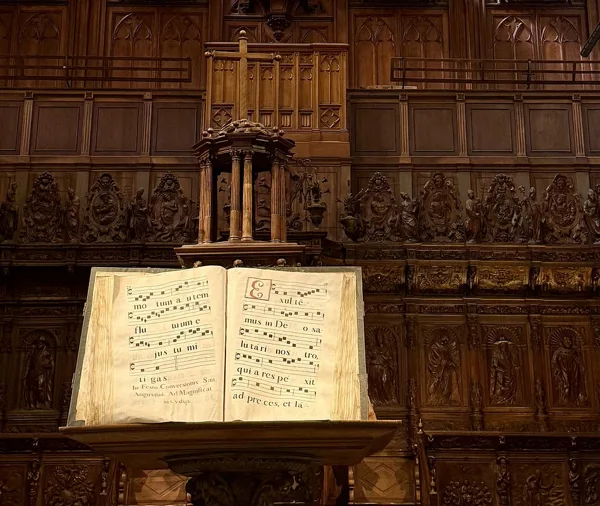 mo tum a utem
flu
jus tu mi
ti gas.
In Festo Conversionis San.
Augustini. Ad Magnificat
E xul té
mus in De o sa
lu tári nos tro,
qui a res pe xit
ad pre ces, et la